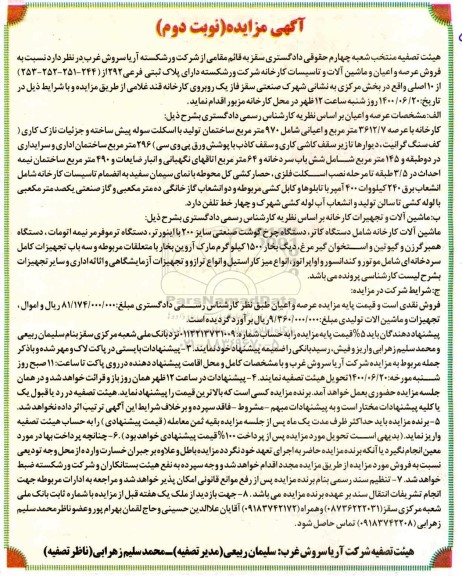 آگهی مزایده(نوبت دوم)
هیئت تصفیه منتخب شعبه چهارم حقوقی دادگستری سقز به قائم مقامی از شرکت ورشکسته آریا سروش غرب در نظر دارد نسبت به
فروش عرصه و اعیان و ماشین آلات و تاسیسات کارخانه شرکت ورشکسته دارای پلاک ثبتی فرعی ۲۹۲ از (۲۴۴-۲۵۱-۲۵۲-۲۵۳)
از ۱۰ اصلی واقع در بخش مرکزی به نشانی شهرک صنعتی سقز فاز یک روبروی کارخانه قند غلامی از طریق مزایده و با شرایط ذیل در
تاریخ: ۱۴۰۰/۰۶/۲۰ روز شنبه ساعت ۱۲ ظهر در محل کارخانه مزبور اقدام نماید.
الف: مشخصات عرصه و اعیان بر اساس نظریه کارشناس رسمی دادگستری بشرح ذیل:
کارخانه با عرصه ۳۶۱۲/۷ متر مربع و اعیانی شامل ۹۷۰ متر مربع ساختمان تولید با اسکلت سوله پیش ساخته و جزئیات نازک کاری (
کف سنگ گرانیت، دیوارها تا زیر سقف کاشی کاری و سقف کاذب با پوشش ورق پی وی سی) ۲۹۶ متر مربع ساختمان اداری و سرایداری
در دو طبقه و ۱۴۵ متر مربع شامل شش باب سردخانه و ۶۴ متر مربع اتاقهای نگهبانی و انبار ضایعات و ۴۹۰ متر مربع ساختمان نیمه
احداث در ۳/۵ طبقه تا مرحله نصب اسکلت فلزی، حصار کشی کل محوطه با نمای سیمان سفید به انضمام تاسیسات کارخانه شامل
انشعاب برق ۲۴۰ کیلووات ۴۰۰ آمپر با تابلوها و کابل کشی مربوطه و دو انشعاب گاز خانگی ده متر مکعبی و گاز صنعتی یکصد متر مکعبی
با لوله کشی تا سالن تولید و انشعاب آب لوله کشی شهرک و چهار خط تلفن دارد.
ب: ماشین آلات و تجهیزات کارخانه بر اساس نظریه کارشناس رسمی دادگستری بشرح ذیل:
ماشین آلات کارخانه شامل دستگاه کاتر، دستگاه چرخ گوشت صنعتی سایز ۲۰۰ با اینورتر، دستگاه ترموفرمر نیمه اتومات، دستگاه
همبرگرزن و گیوتین و استخوان گیر مرغ، دیگ بخار ۱۵۰۰ کیلوگرم مارک آروین بخار با متعلقات مربوطه و سه باب تجهیزات کامل
سردخانه ای شامل موتور و کندانسور و اواپراتور، انواع میز کار استیل و انواع ترازو و تجهیزات آزمایشگاهی و اثاثه اداری و سایر تجهیزات
بشرح لیست کارشناسی پرونده می باشد.
ج: شرایط شرکت در مزایده:
فروش نقدی است و قیمت پایه مزایده عرصه و اعیان طبق نظر کارشناس رسمی دادگستری مبلغ: ۸۱/۱۷۴/۰۰۰/۰۰۰ ریال و اموال،
تجهیزات و ماشین الات تولیدی مبلغ: ۹/۳۶۰/۰۰۰/۰۰۰ ریال برآورد گردیده است.
پیشنهاد دهندگان باید ۵% قیمت پایه مزایده را به حساب شماره: ۰۱۱۴۲۱۳۷۳۱۰۰۹ نزد بانک ملی شعبه مرکزی سقز بنام سلیمان ربیعی
و محمد سلیم زهرابی واریز و فیش، رسید بانکی را ضمیمه پیشنهاد خود نمایند. ۳- پیشنهادات بایستی در پاکت لاک و مهر شده و با ذکر
جمله مربوط به مزایده شرکت آریا سروش غرب و با مشخصات کامل و محل اقامت پیشنهاد دهنده در روی پاکت تا ساعت: ۱۱ صبح روز
شنبه مورخه: ۱۴۰۰/۰۶/۲۰ تحویل هیئت تصفیه نمایند. ۴- پیشنهادات در ساعت ۱۲ ظهر همان روز باز و قرائت خواهد شد و در همان
جلسه مزایده حضوری بعمل خواهد آمد. برنده مزایده کسی است که بالاترین قیمت را پیشنهاد نماید. هیئت تصفیه در رد یا قبول یک
یا کلیه پیشنهادات مختار است و به پیشنهادات مبهم - مشروط - فاقد سپرده و بر خلاف شرایط این آگهی ترتیب اثر داده نخواهد شد.
۵- برنده مزایده باید حداکثر ظرف مدت یک ماه پس از جلسه مزایده بقیه ثمن معامله (قیمت پیشنهادی) را به حساب هیئت تصفیه
واریز نماید. (بدیهی است تحویل مورد مزایده پس از پرداخت ۱۰۰% قیمت پیشنهادی خواهد بود). ۶- چنانچه پرداخت بها در مورد
معین انجام نگیرد یا آنکه برنده مزایده حاضر به اجرای تعهد خود نگردد مزایده باطل و علاوه بر جبران خسارت وارده از محل وجه تودیعی
نسبت به فروش مورد مزایده از طریق مزایده مجدد اقدام خواهد شد و وجه سپرده به نفع هیئت بستانکاران و شرکت ورشکسته ضبط
خواهد شد. ۷- تنظیم سند رسمی بنام برنده مزایده پس از رفع موانع قانونی امکان پذیر خواهد شد و مراجعه به ادارات مربوطه جهت
انجام تشریفات انتقال سند بر عهده برنده مزایده می باشد. ۸- جهت بازدید از ملک یک هفته قبل از مزایده با شماره ثابت بانک ملی
شعبه مرکزی سقز (۰۸۷۳۶۲۲۲۰۳۱) و همراه (۰۹۱۸۳۷۴۲۱۷۲) آقایان علاالدین حسینی و حاج لقمان بهرام پور و عضو ناظر محمد سلیم
زهرابی (۰۹۱۸۳۷۴۲۲۰۸) تماس حاصل شود.
هیئت تصفیه شرکت آریا سروش غرب: سلیمان ربیعی (مدیر تصفیه) - محمد سلیم زهرابی (ناظر تصفیه)